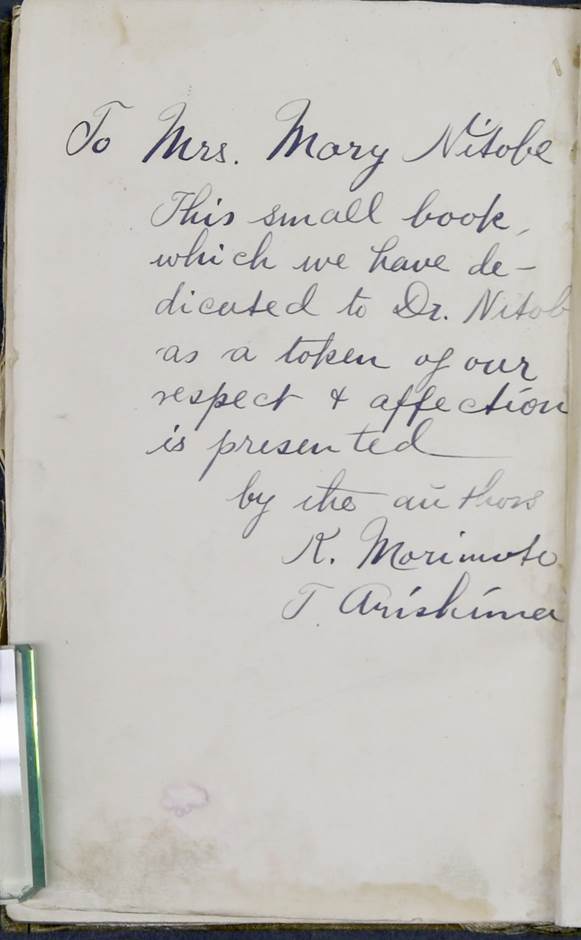 To Mrs. Mary Nitobe
This small book,
which we have de-
dicated to Dr. Nitob
as a token of our
respect & affection
is presented
by the authors
K. Morimoto
T. Arishima